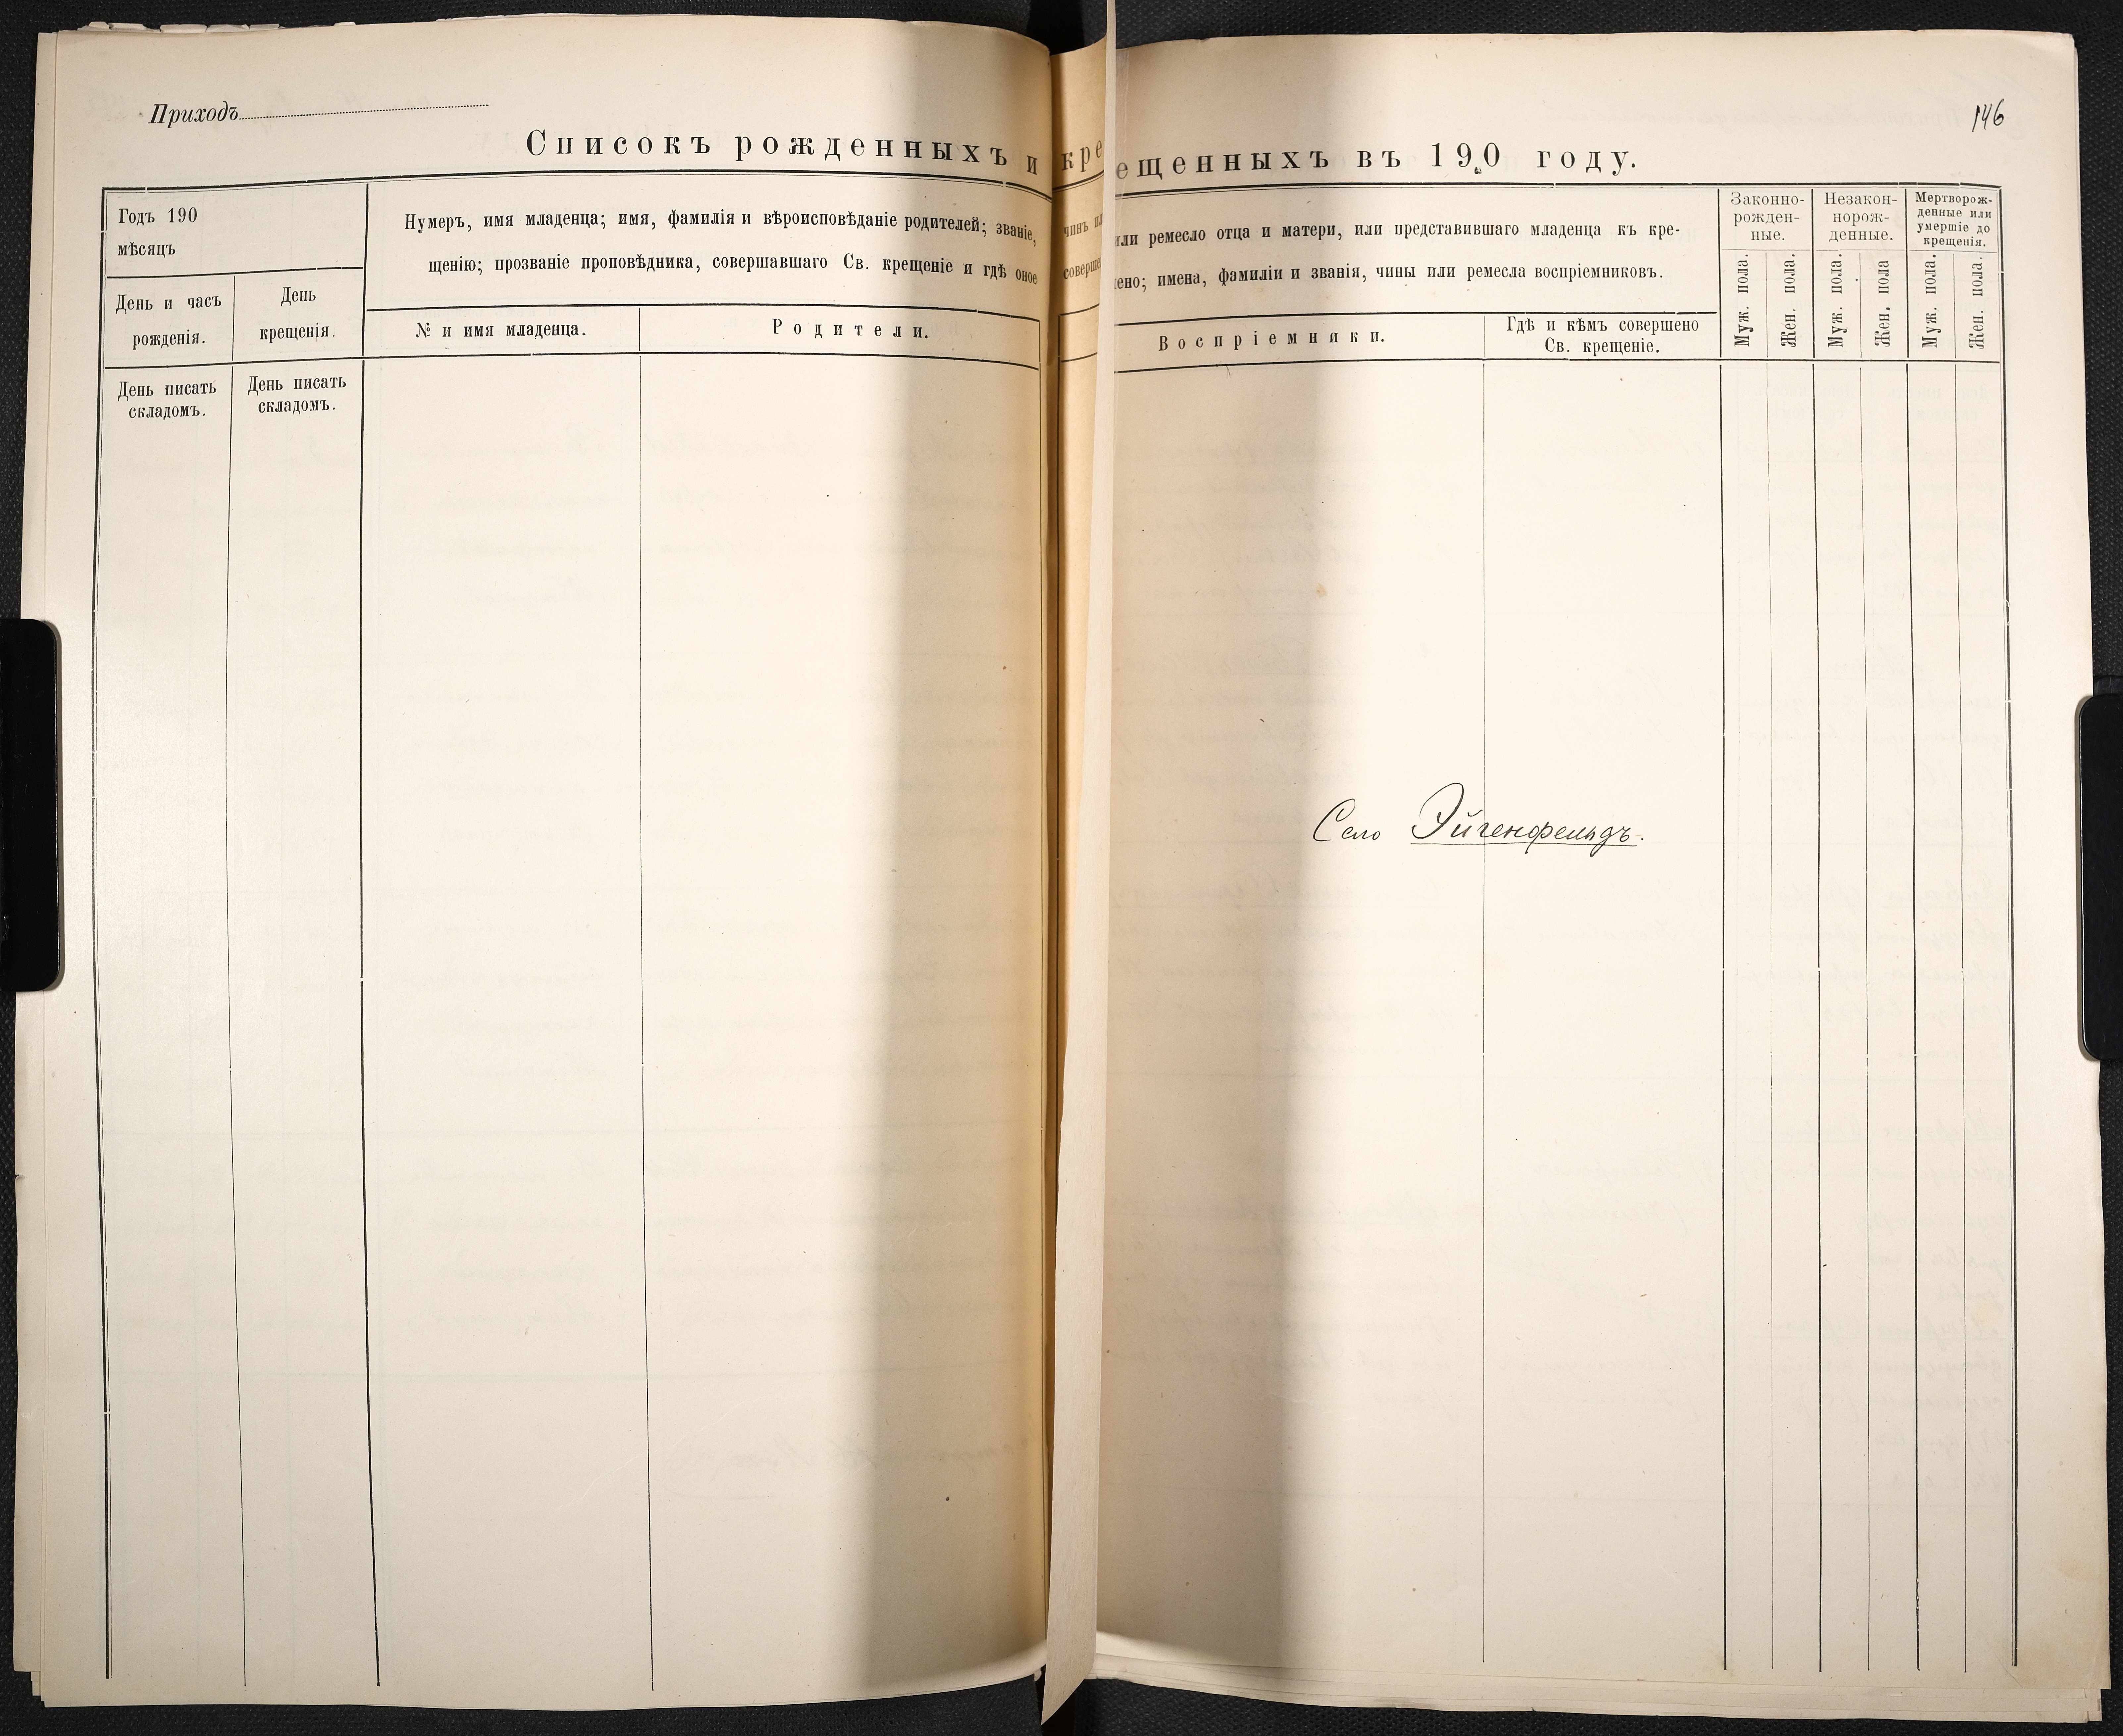 Приходъ
146
Списокъ рожденныхъ и кре
ещенныхъ въ 190 году.
Годъ 190
мѣсяцъ
День и часъ
рожденія.
День
крещенія.
Нумеръ, имя младенца; имя, фамилія и вѣроисповѣданіе родителей; званіе,
щенію; прозваніе проповѣдника, совершавшаго Св. крещеніе и гдѣ оное
№ и имя младенца.
Родители.
День писать
складомъ.
День писать
складомъ.
чинъ
соверше
или ремесло отца и матери, или представившаго младенца къ кре-
ено; имена, фамиліи и званія, чины или ремесла воспріемниковъ.
Воспріемники.
Гдѣ и кѣмъ совершено
Св. крещеніе.
Законно-
рожден-
ные.
Незакон-
норож-
денные.
Мертворож-
денные или
умершіе до
крещенія.
Муж. пола.
Жен. пола.
Муж. пола.
Жен. пола
Муж. пола.
Жен. пола.
Село Эйгенфельдъ.